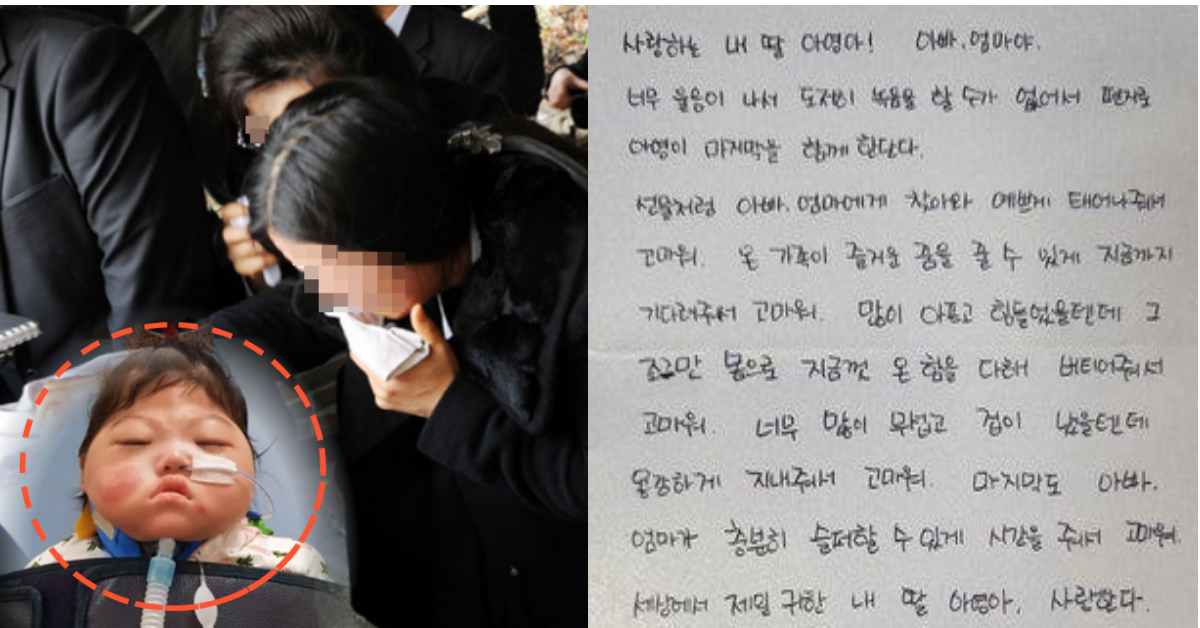 사랑하는 내 딸 아영아! 아빠.엄마야.
너무 울음이 나서 도저히 녹음을 할 수가 없어서 편지로
아영이 마지막을 함께 한단다.
선물처럼 아빠.엄마에게 찾아와 예쁘게 태어나줘서
고마워. 온 가족이 즐거운 꿈을 꿀 수 있게 지금까지
기다려주어 고마워. 많이 아프고 힘들었을텐데 그
조그만 몸으로 지금껏 온 힘을 다해 버티어줘서
고마워. 너무 많이 무섭고 겁이 났을텐데
용감하게 지내줘서 고마워. 마지막도 아빠.
엄마가 충분히 슬퍼할 수 있게 시간을 줘서 고마워.
세상에서 제일 귀한 내 딸 아영아. 사랑한다.